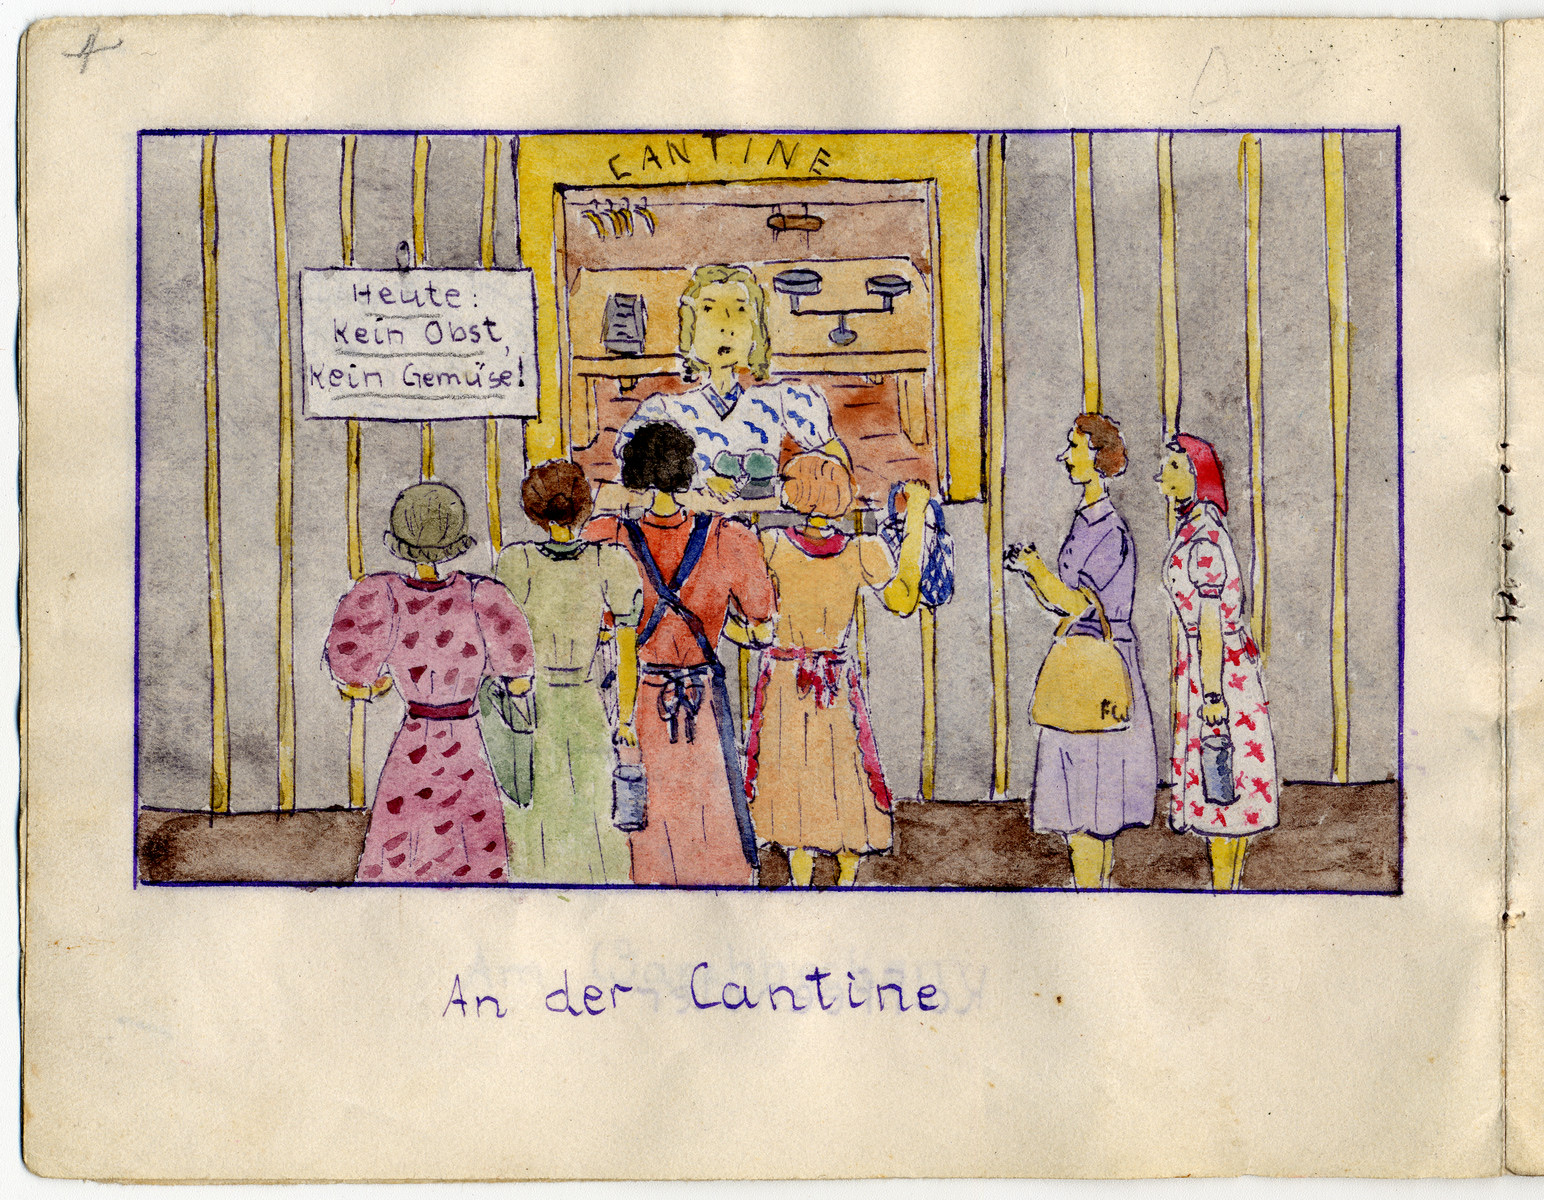 CANTINE
Heute:
Kein Obst,
Kein Gemüse!
FW
An der Cantine